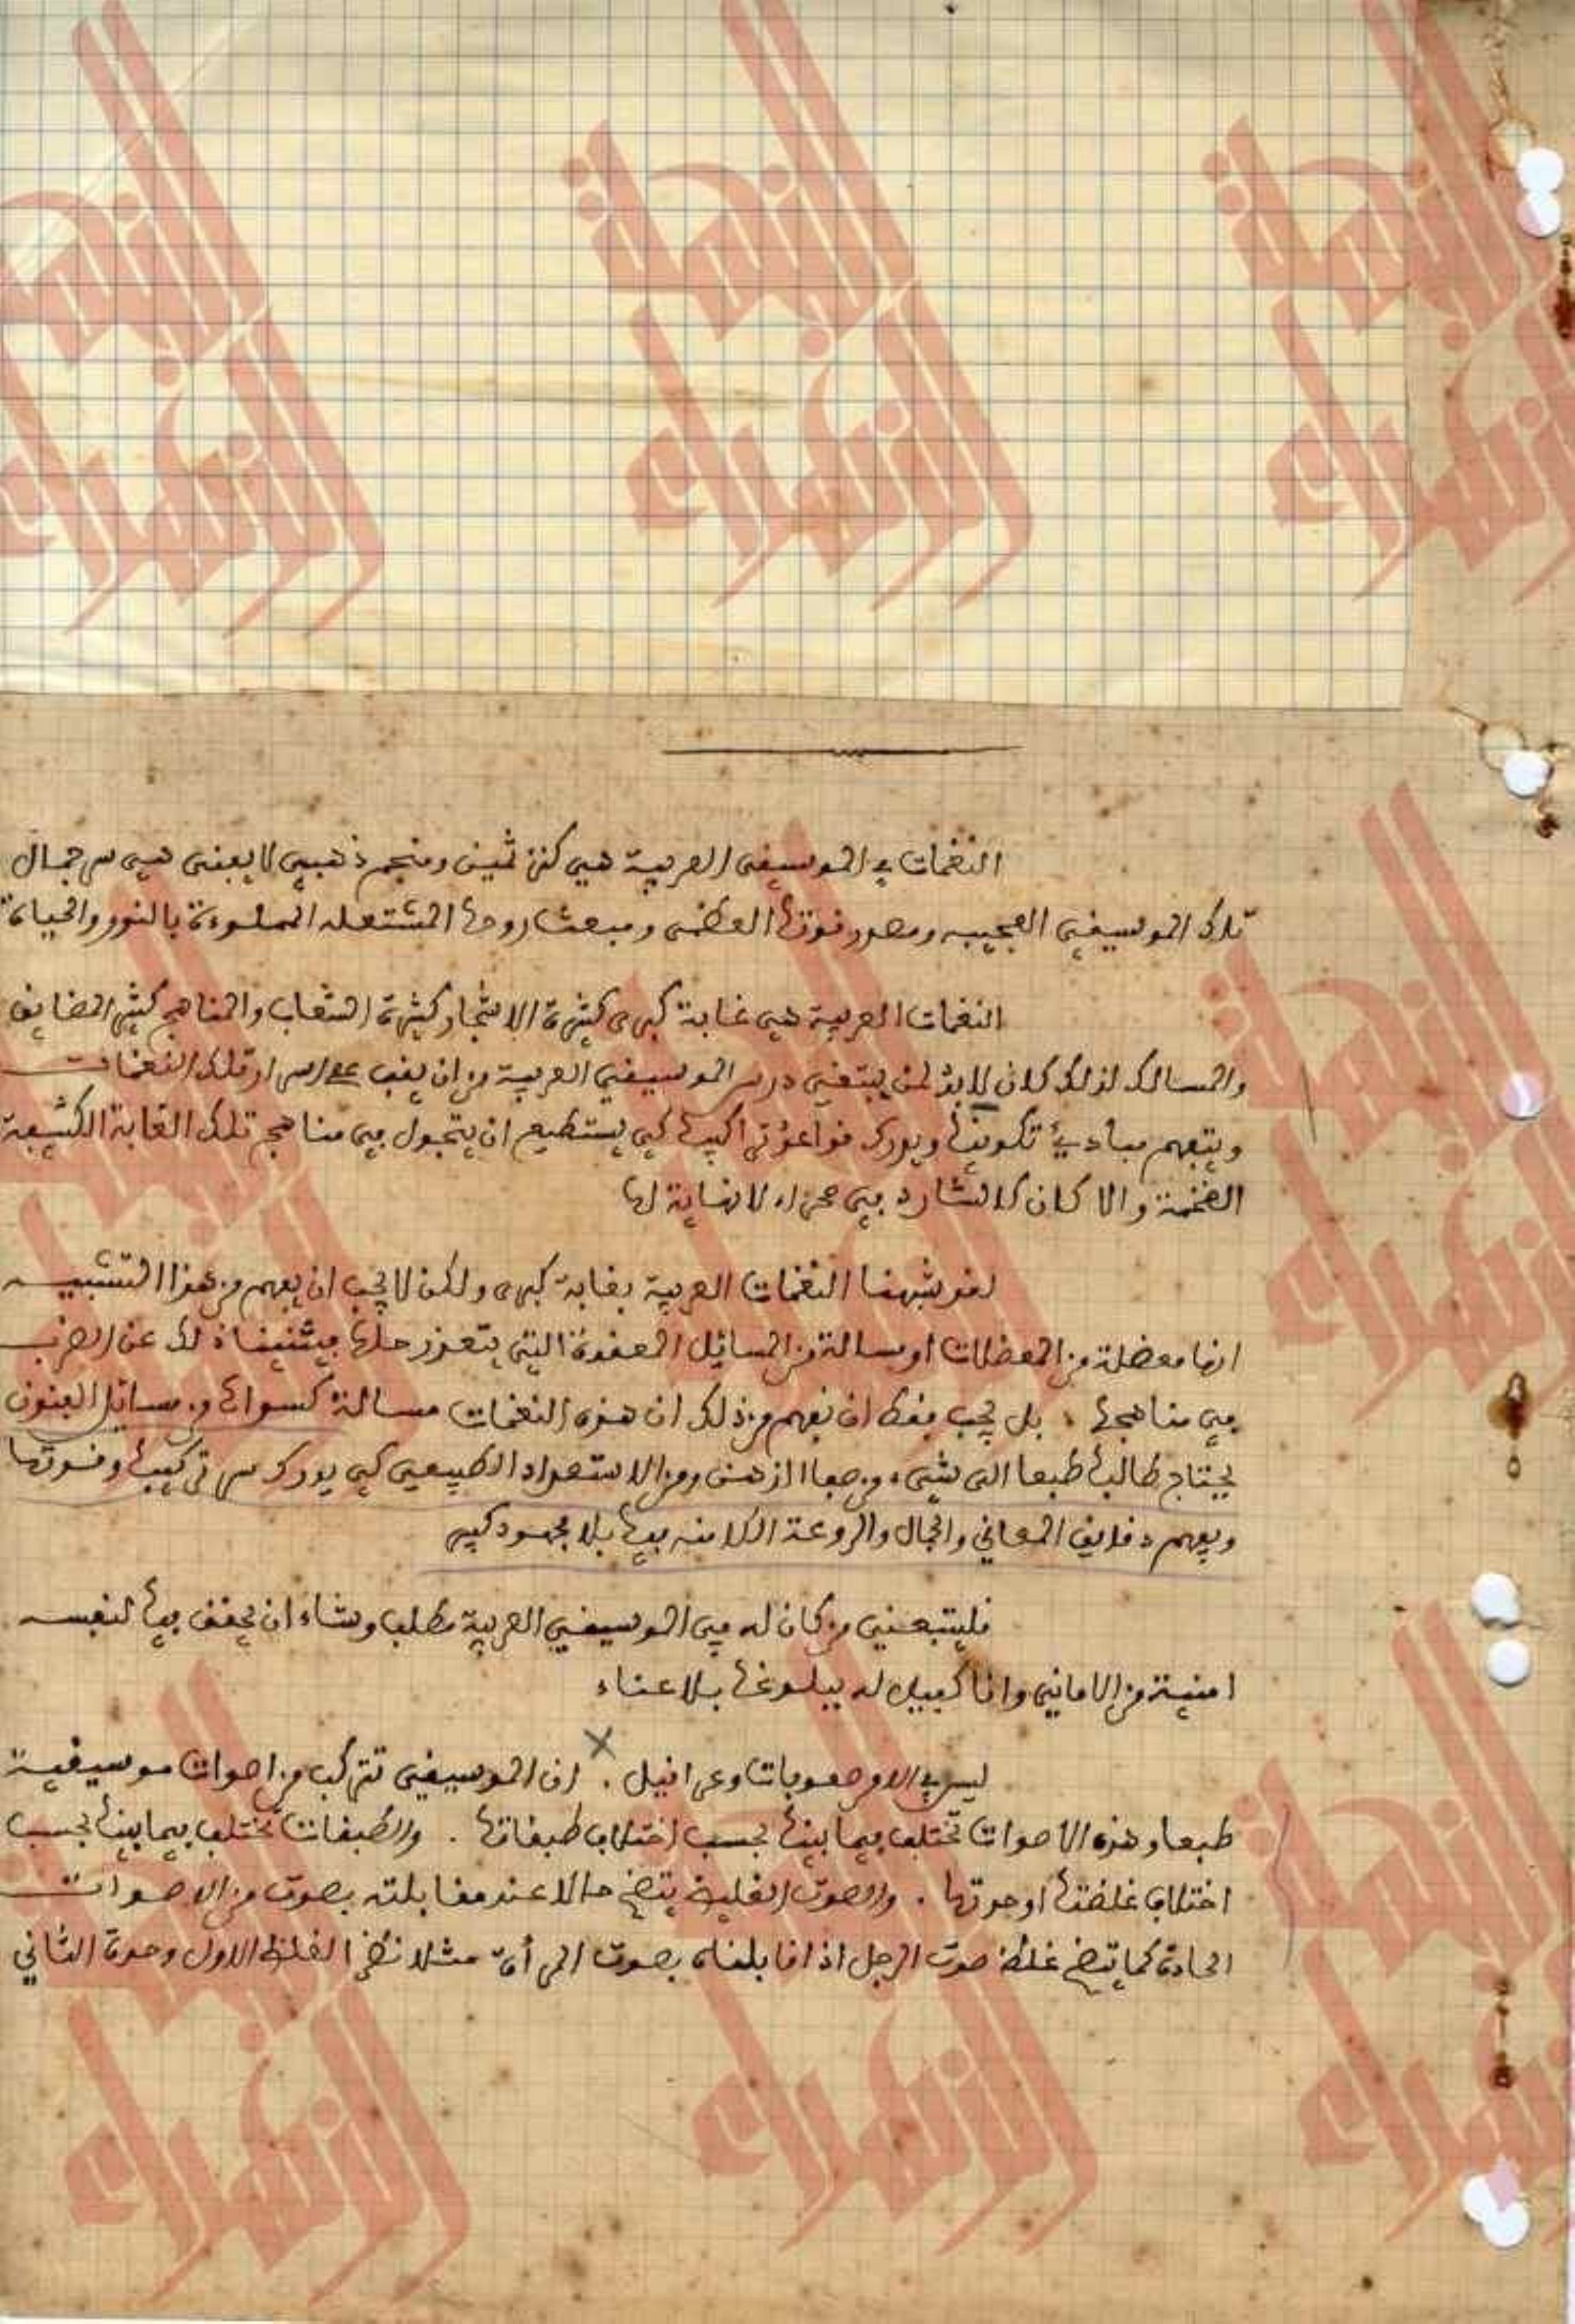 النغمات في الموسيقى العربية هي كنز ثمين ومنجم ذهبي لا يفنى هي سر جمال
تلك الموسيقى العجيبه ومصدر قوتها العظمى ومبعث روحها المشتعله المملوءة بالنور والحياة
النغمات العربية هي غابة كبرى كثيرة الاشجار كثيرة الشعاب والمناهج كثير المضايق
والمسالك لذلك كان لابد لمن يبتغي درس الموسيقى العربية من ان يقف على اسرار تلك النغمات
ويتفهم مبادئ تكوينها ويدرك قواعد تراكيبها كي يستطيع ان يتجول في مناهج تلك الغابة الكثيفة
الضخمة والا كان كالشارد في صحراء لا نهاية لها
لقد شبهنا النغمات العربية بغابة كبرى ولكن لا يجب ان يفهم من هذا التشبيه
انها معضلة من المعضلات او مسالة من المسائل المعقدة التي يتعذر حلها فيثنينا ذلك عن الضرب
في مناهجها ، بل يجب فقط ان نفهم من ذلك ان هذه النغمات مسالة كسواها من مسائل الفنون
يحتاج طالبها طبعا الى شيء من صفاء الذهن ومن الاستعداد الطبيعي كي يدرك سر تركيبها وقوتها
ويفهم دقايق المعاني والجمال والروعة الكامنه فيها بلا مجهود كبير
فليتبعني من كان له في الموسيقى العربية مطلب وشاء ان يحقق فيها لنفسه
امنية من الاماني وانا كفيل له ببلوغها بلا عناء
ليس في الامر صعوبات وعراقيل . ان الموسيقى تتركب من اصوات موسيقية
طبعا وهذه الاصوات تختلف فيما بينها بحسب اختلاف طبقاتها . والطبقات تختلف فيما بينها بحسب
اختلاف غلظتها او حدتها . والصوت الغليظ يتضح حالا عند مقابلته بصوت من الاصوات
الحادة كما يتضح غلظ صوت الرجل اذا قابلناه بصوت المرأة مثلا نظرا لغلظ الاول وحدة الثاني
النهضة
الزهراء